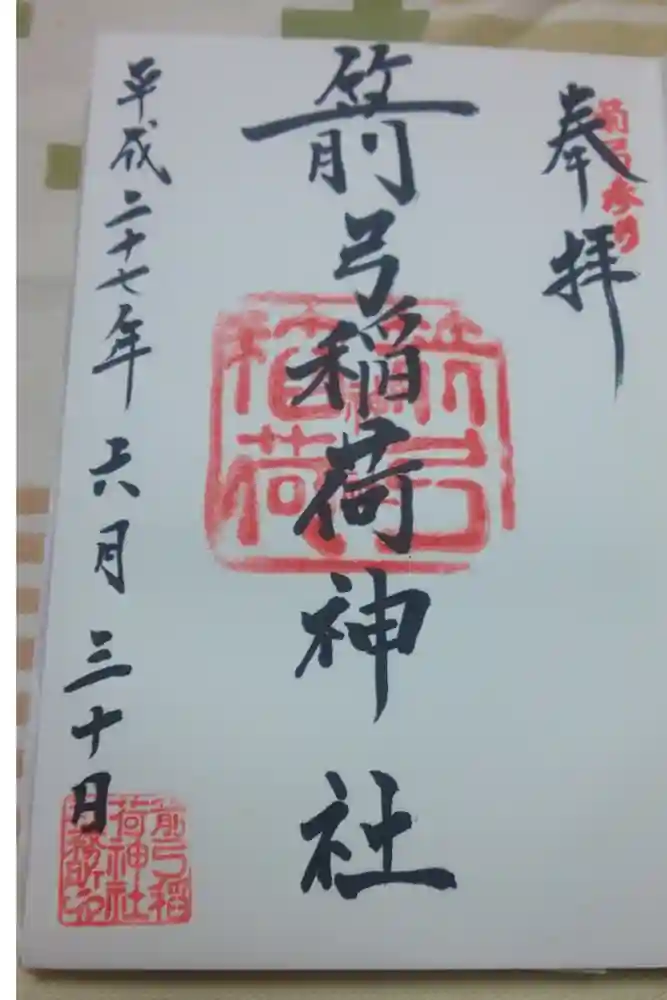 奉拝
箭弓稲荷神社
箭弓稲荷
平成二十七年六月三十日
箭弓稲荷神社社務所印